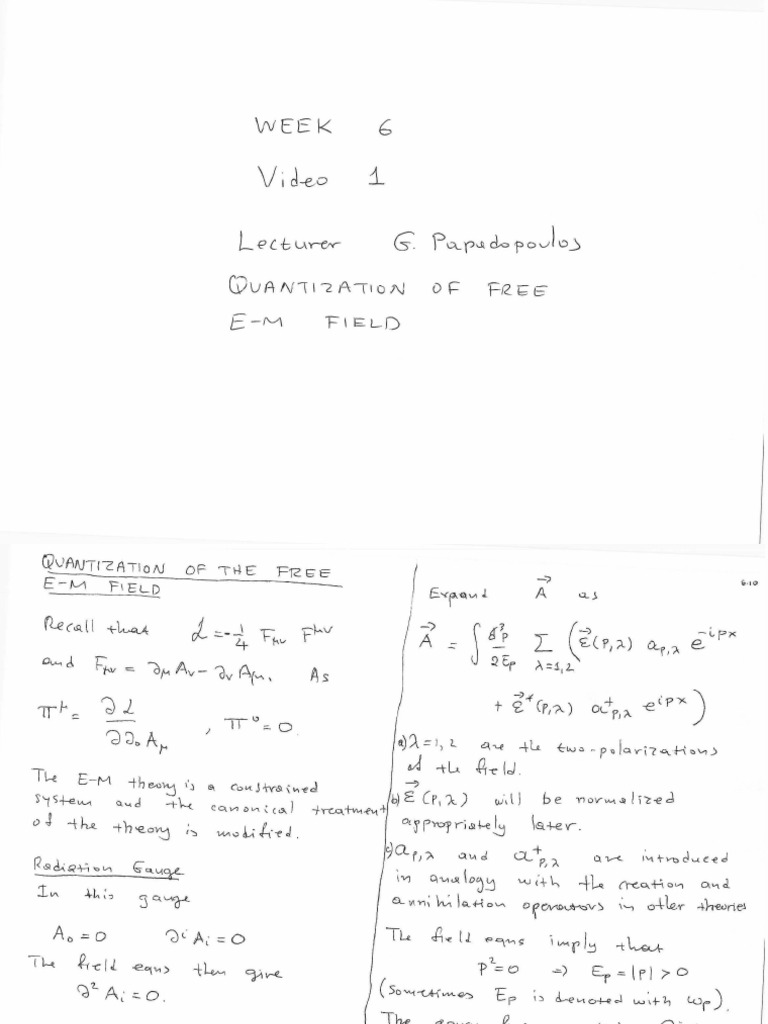 WEEK 6
Video 1
Lecturer G. Papadopoulos
QUANTIZATION OF FREE
E-M FIELD
QUANTIZATION OF THE FREE
E-M FIELD
Recall that ℒ = -1/4 Fμν F^μν
and Fμν = ∂μ Aν - ∂ν Aμ. As
Π^μ = ∂ℒ/∂∂₀Aμ , Π⁰ = 0.
The E-M theory is a constrained
system and the canonical treatment
of the theory is modified.
Radiation Gauge
In this gauge
A₀ = 0 ∂ⁱAᵢ = 0
The field eqns then give
∂²Aᵢ = 0.
6.10
Expand A⃗ as
A⃗ = ∫ d³p/2Ep Σ λ=1,2 (ε⃗(p,λ) a p,λ e^-ipx
+ ε⃗*(p,λ) a⁺p,λ e^ipx)
a) λ=1,2 are the two-polarizations
of the field.
b) ε⃗(p,λ) will be normalized
appropriately later.
c) a p,λ and a⁺p,λ are introduced
in analogy with the creation and
annihilation operators in other theories
The field eqns imply that
p²=0 ⇒ Ep = |p| > 0
(Sometimes Ep is denoted with ωp).
The